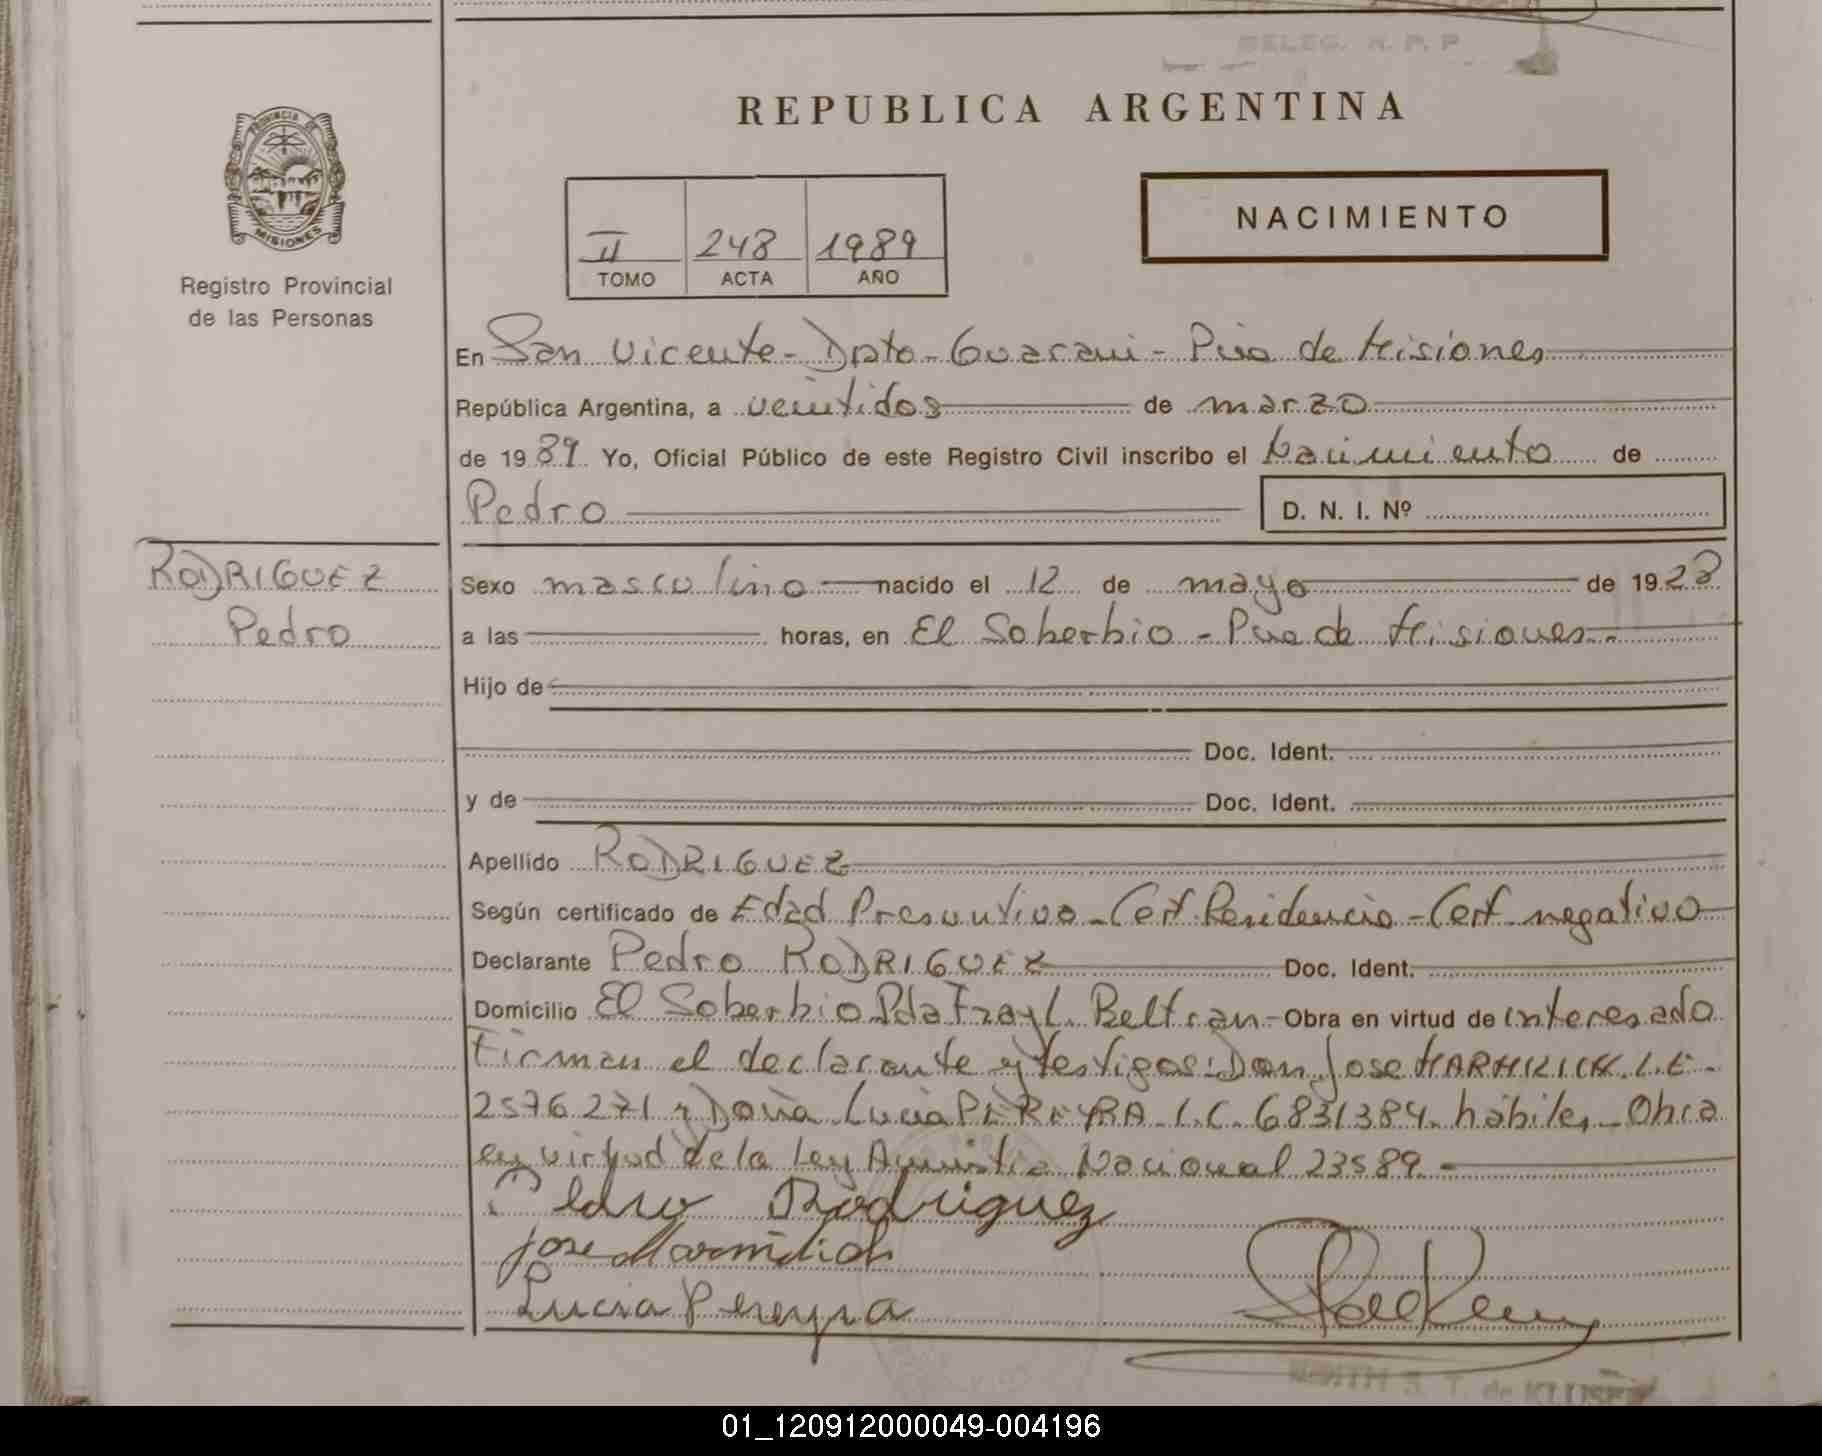 DELEG. R. P. P.
REPUBLICA ARGENTINA
PROVINCIA DE
MISIONES
Registro Provincial
de las Personas
II 248 1989
TOMO ACTA AÑO
NACIMIENTO
En San Vicente - Dpto - Guarani - Pcia de Misiones
República Argentina, a veintidos de marzo
de 1989 Yo, Oficial Público de este Registro Civil inscribo el Nacimiento de
Pedro D. N. I. Nº
RODRIGUEZ
Pedro
Sexo masculino nacido el 12 de mayo de 1923
a las horas, en El Soberbio - Pcia de Misiones.-
Hijo de
Doc. Ident.
y de Doc. Ident.
Apellido RODRIGUEZ
Según certificado de Edad Presuntiva - Cert. Residencia - Cert negativo
Declarante Pedro RODRIGUEZ Doc. Ident.
Domicilio El Soberbio Pda Fray L. Beltran - Obra en virtud de interesado
Firman el declarante y testigos: Don Jose L.E.
2576271 y Doña Lucia PEREYRA L.C. 6831384. hábiles - Obra
en virtud de la Ley Amnistia Nacional 23589.-
Pedro Rodriguez
Jose
Lucia Pereyra
S. T. de
01_120912000049-004196